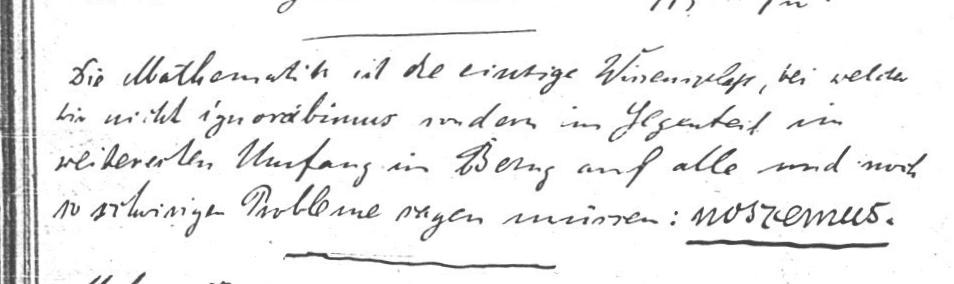 Die Mathematik ist die einzige Wissenschaft, bei welcher
wir nicht ignorabimus sondern im Gegenteil im
weiteresten Umfang in Bezug auf alle und noch
so schwierigen Probleme sagen müssen: noscemus.